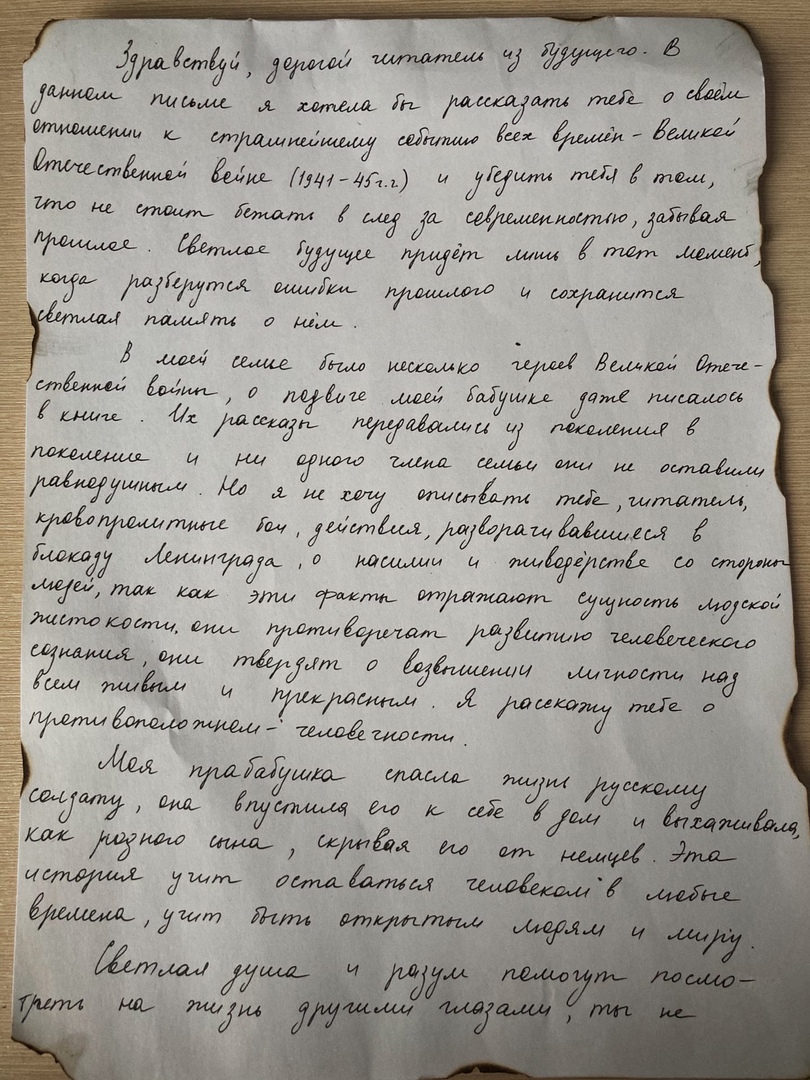 Здравствуй, дорогой читатель из будущего. В
данном письме я хотела бы рассказать тебе о своём
отношении к страшнейшему событию всех времён - Великой
Отечественной войне (1941-45г.г.) и убедить тебя в том,
что не стоит бежать в след за современностью, забывая
прошлое. Светлое будущее придёт лишь в тот момент,
когда разберутся ошибки прошлого и сохранится
светлая память о нём.
В моей семье было несколько героев Великой Отече-
ственной войны, о подвиге моей бабушке даже писалось
в книге. Их рассказы передавались из поколения в
поколение и ни одного члена семьи они не оставили
равнодушным. Но я не хочу описывать тебе, читатель,
кровопролитные бои, действия, разворачивавшиеся в
блокаду Ленинграда, о насилии и живодёрстве со стороны
людей, так как эти факты отражают сущность людской
жестокости, они противоречат развитию человеческого
сознания, они твердят о возвышении личности над
всем живым и прекрасным. Я расскажу тебе о
противоположном - человечности.
Моя прабабушка спасла жизнь русскому
солдату, она впустила его к себе в дом и выхаживала,
как родного сына, скрывая его от немцев. Эта
история учит оставаться человеком в любые
времена, учит быть открытым людям и миру.
Светлая душа и разум помогут посмо-
треть на жизнь другими глазами, ты не